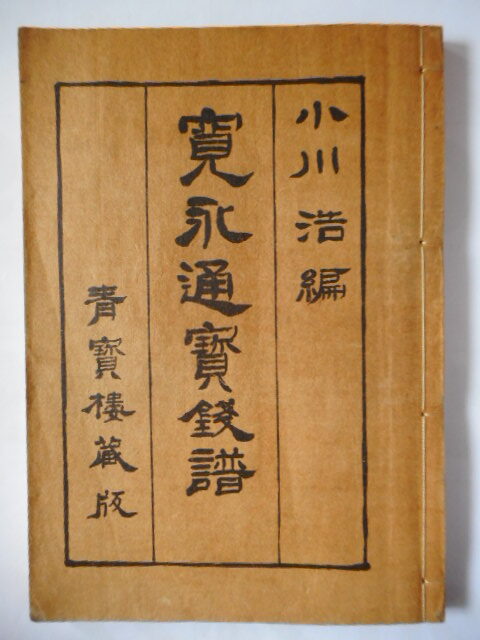 小川浩編
寛永通寳錢譜
青寳樓蔵版